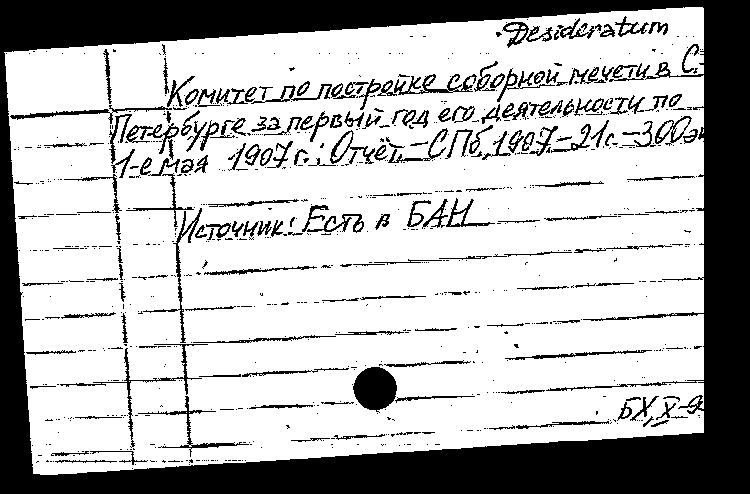 Desideratum
Комитет по постройке соборной мечети в С-
Петербурге за первый год его деятельности по
1-е мая 1907 г.: Отчёт. – СПб, 1907. – 21с. – 300эк
Источник: Есть в БАН
БХ, X-9